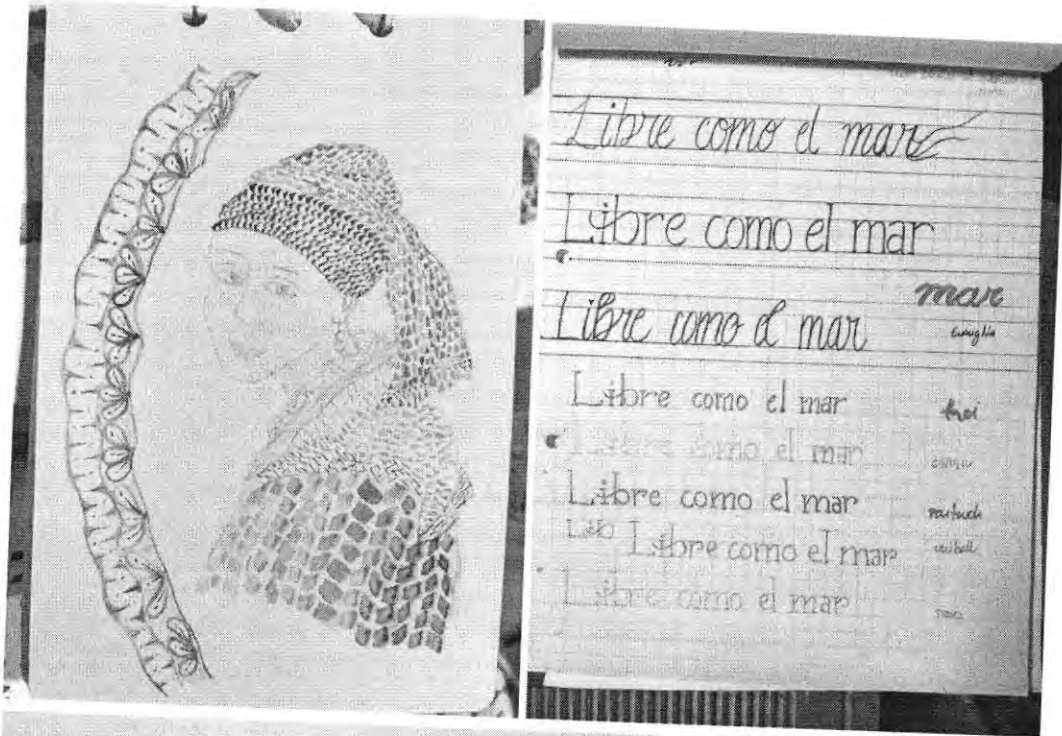 Libre como el mar
Libre como el mar
mar
Libre como el mar
Libre como el mar
Libre como el mar
Libre como el mar
Lib Libre como el mar
Libre como el mar